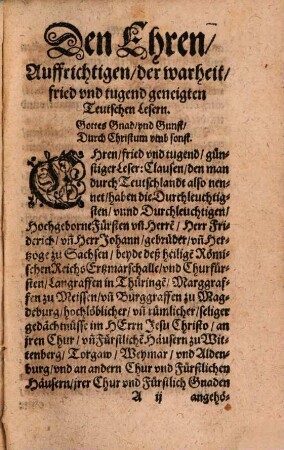 Den Ehren/
Auffrichtigen/der warheit/
fried vnd tugend geneigten
Teutschen Lesern.
Gottes Gnad/vnd Gunst/
Durch Christum vmb sonst.
EHren/fried vnd tugend/gün-
stiger Leser: Clausen/den man
durch Teutschlandt also nen-
net/haben die Durchleuchtig-
sten/vnnd Durchleuchtigen/
Hochgeborne Fürsten vñ Herrẽ/Herr Fri-
derich/vñ Herr Johann/gebrüder/vñ Her-
tzoge zu Sachsen/beyde deß heiligẽ Römi-
schen Reichs Ertzmarschalle/vnd Churfür-
sten/Langraffen in Thüringẽ/Marggraf-
fen zu Meissen/vñ Burggraffen zu Mag-
deburg/hochlöblicher/vñ rümlicher/seliger
gedächtnüsse im HErrn Jesu Christo/an
jren Chur/vñ Fürstlichẽ Häusern zu Wit-
tenberg/Torgaw/Weymar/vnd Alden-
burg/vnd an andern Chur vnd Fürstlichen
Häusern/jrer Chur vnd Fürstlich Gnaden
A ij angehö-